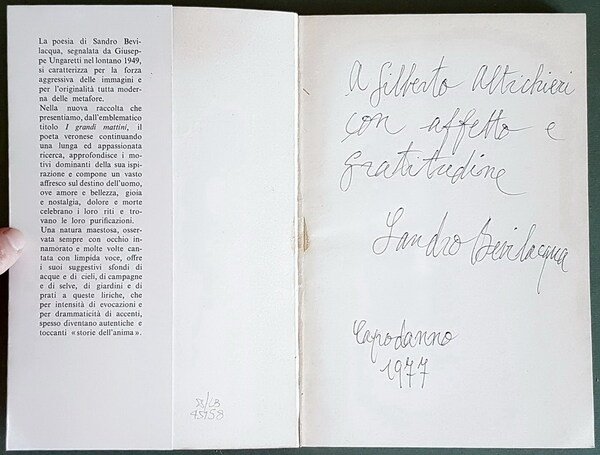 La poesia di Sandro Bevi-
lacqua, segnalata da Giusep-
pe Ungaretti nel lontano 1949,
si caratterizza per la forza
aggressiva delle immagini e
per l'originalità tutta moder-
na delle metafore.
Nella nuova raccolta che
presentiamo, dall'emblematico
titolo I grandi mattini, il
poeta veronese continuando
una lunga ed appassionata
ricerca, approfondisce i mo-
tivi dominanti della sua ispi-
razione e compone un vasto
affresco sul destino dell'uomo,
ove amore e bellezza, gioia
e nostalgia, dolore e morte
celebrano i loro riti e tro-
vano le loro purificazioni.
Una natura maestosa, osser-
vata sempre con occhio in-
namorato e molte volte can-
tata con limpida voce, offre
i suoi suggestivi sfondi di
acque e di cieli, di campagne
e di selve, di giardini e di
prati a queste liriche, che
per intensità di evocazioni e
per drammaticità di accenti,
spesso diventano autentiche e
toccanti «storie dell'anima».
45158
A Gilberto Altichieri
con affetto e
gratitudine
Sandro Bevilacqua
Capodanno
1977